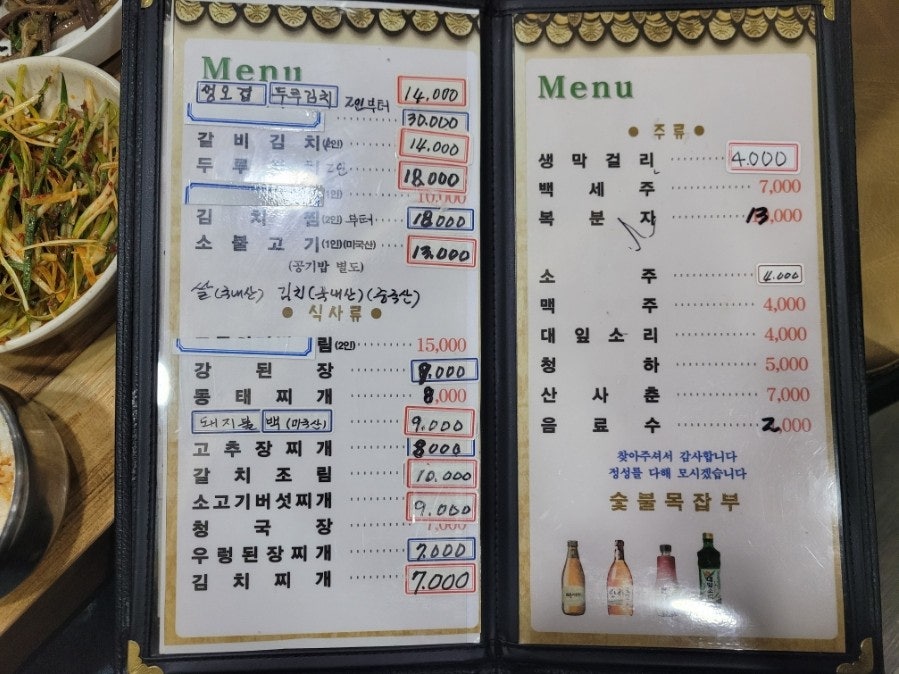 Menu
생오겹 두루김치 2인부터 14,000
30,000
갈비김치(1인) 14,000
두루 2인 18,000
10,000
김치찜(2인)부터 18,000
소불고기(1인)(미국산) 13,000
(공기밥 별도)
쌀(국내산) 김치(국내산)(중국산)
식사류
림(2인) 15,000
강된장 8,000
동태찌개 8,000
돼지불백(미국산) 9,000
고추장찌개 8,000
갈치조림 10,000
소고기버섯찌개 9,000
청국장 7,000
우렁된장찌개 7,000
김치찌개 7,000
Menu
주류
생막걸리 4,000
백세주 7,000
복분자 13,000
소주 4,000
맥주 4,000
대잎소리 4,000
청하 5,000
산사춘 7,000
음료수 2,000
찾아주셔서 감사합니다
정성를 다해 모시겠습니다
숯불목잡부